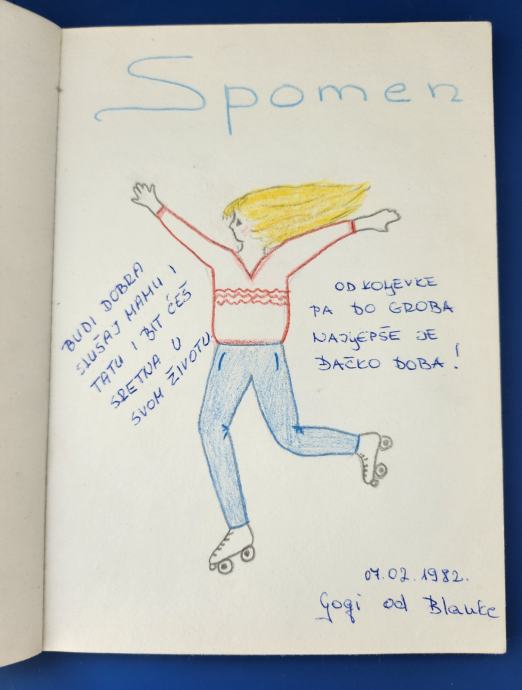 Spomen
BUDI DOBRA
SLUŠAJ MAMU I
TATU I BIT ĆEŠ
SRETNA U
SVOM ŽIVOTU
OD KOLJEVKE
PA DO GROBA
NAJLJEPŠE JE
ĐAČKO DOBA!
07.02.1982.
Gogi od Blanke